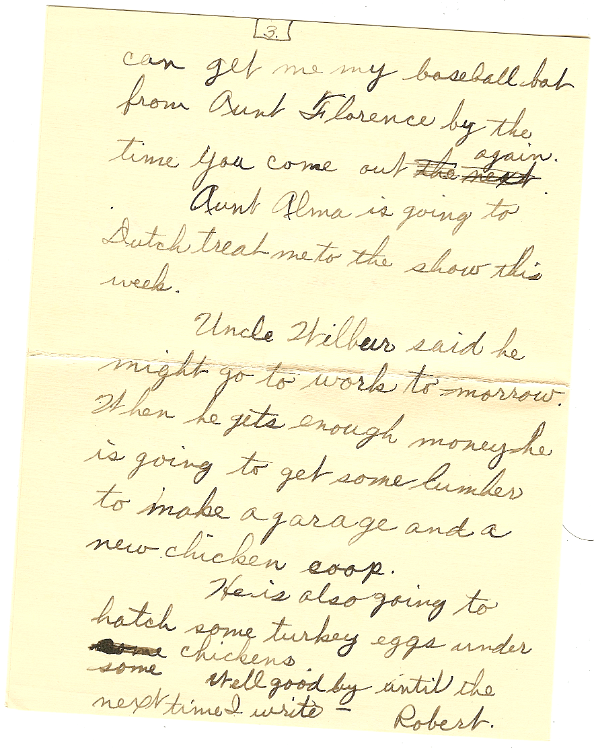 3.
can get me my baseball bat
from Aunt Florence by the
time you come out the next again.
Aunt Alma is going to
Dutch treat me to the show this
week.
Uncle Wilbur said he
might go to work to-morrow.
When he gets enough money he
is going to get some lumber
to make a garage and a
new chicken coop.
He is also going to
hatch some turkey eggs under
some chickens
some Well good by until the
next time I write – Robert.